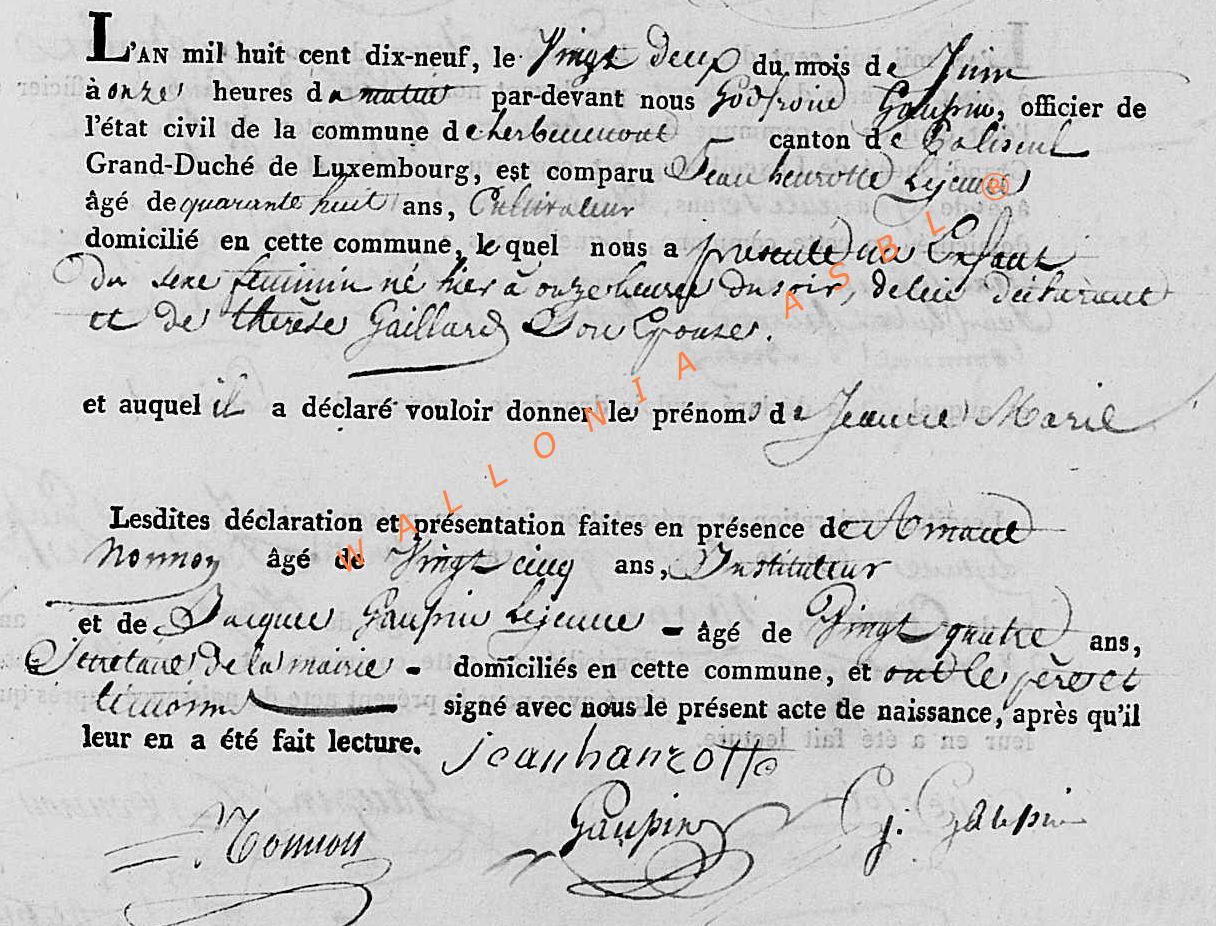 L'AN mil huit cent dix-neuf, le Vingt deux du mois de Juin
à onze heures du matin par-devant nous Godfroid Gaupin, officier de
l'état civil de la commune de herbeumont canton de Paliseul
Grand-Duché de Luxembourg, est comparu Jean henrotte Lejeune
âgé de quarante huit ans, Cultivateur
domicilié en cette commune, lequel nous a présenté un Enfant
du sexe feminin né hier à onze heures du soir, de lui déclarant
et de thérèse Gaillard Son Epouse.
et auquel il a déclaré vouloir donner les prénoms de Jeanne Marie
Lesdites déclaration et présentation faites en présence de
Nonnon âgé de Vingt cinq ans, Instituteur
et de Jacques Gaupin Lejeune - âgé de Vingt quatre ans,
Secretaire de la mairie - domiciliés en cette commune, et ont le père et
temoins signé avec nous le présent acte de naissance, après qu'il
leur en a été fait lecture. jean hanzotte
Nonnon Gaupin G. Gaupin
WALLONIA ASBL ®